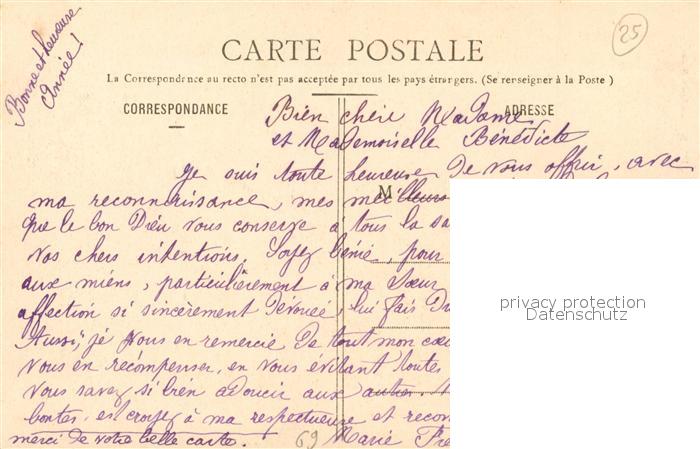 Bonne et heureuse
Année!
25
CARTE POSTALE
La Correspondance au recto n'est pas acceptée par tous les pays étrangers. (Se renseigner à la Poste)
CORRESPONDANCE
ADRESSE
Bien chère Madame
et Mademoiselle Bénédicte
Je suis toute heureuse de vous offrir, avec
ma reconnaissance, mes meilleurs
M
que le bon Dieu vous conserve à tous la
vos chers intentions. Soyez bénie, pour
aux miens, particulièrement à ma Sœur
affection si sincèrement dévouée, lui fais
Aussi, je vous en remercie de tout mon
vous en récompenser, en vous évitant toutes
vous savez si bien adoucir aux autres.
bontés, et croyez à ma respectueuse et
merci de votre belle carte.
69
Marie
privacy protection
Datenschutz